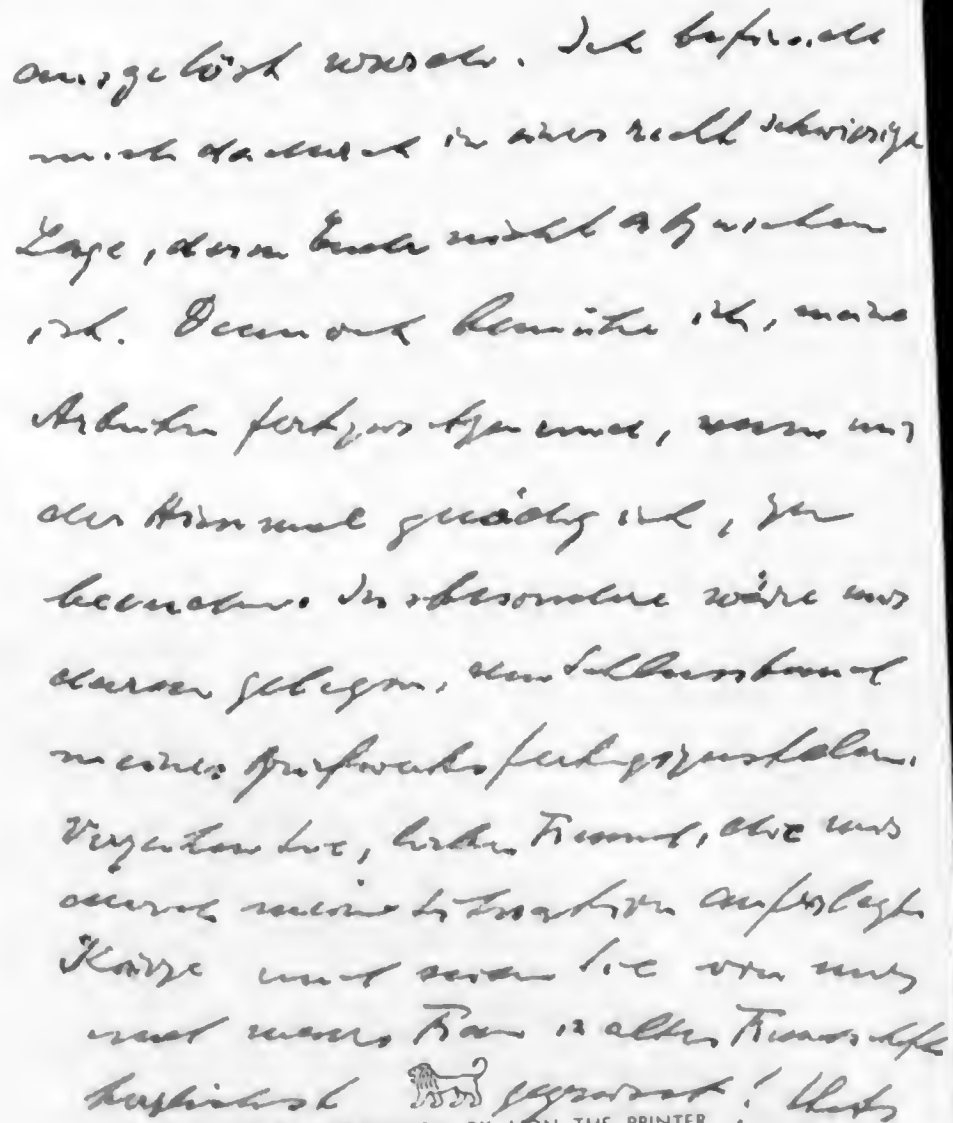 ausgelöst wurde. Ich befinde
mich dadurch in einer recht schwierigen
Lage, deren Ende nicht abzusehen
ist. Dennoch bemühe ich, meine
Arbeiten fertigzu und, wenn mir
der Himmel gnädig ist, zu
beenden. Insbesondere wäre mir
daran gelegen, den Schlussband
meines Briefwerks fertigzustellen.
Verzeihen Sie, lieber Freund, die mir
durch meine Situation auferlegte
Kürze und seien Sie von mir
und meiner Frau in alter Freundschaft
herzlichst gegrüsst! Stets
THE PRINTER